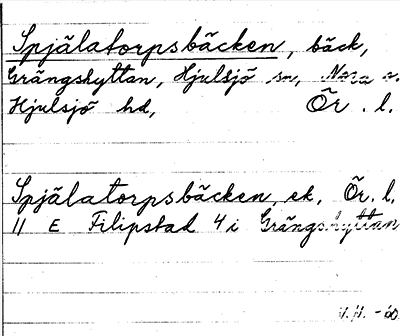 Spjälatorpsbäcken, bäck,
Grängshyttan, Hjulsjö sn, Nora o.
Hjulsjö hd, Ör. l.
Spjälatorpsbäcken, ek, Ör. l.
11 E Filipstad 4 i Grängshyttan
-60